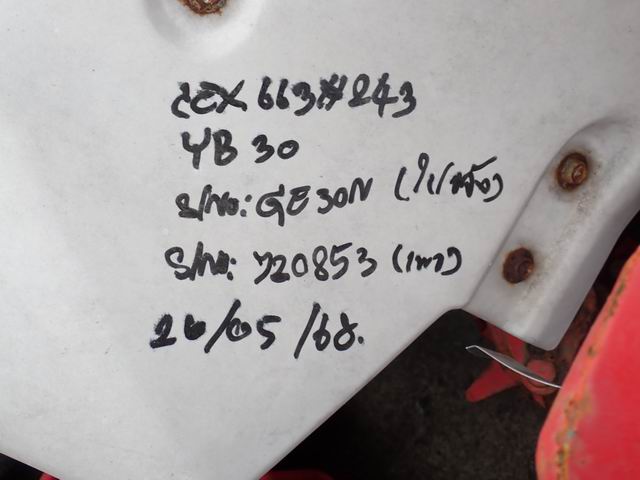 CEX 663#243
YB 30
S/No: GE30N (ใบแจ้ง)
S/No: 720853 (เทา)
26/05/68.